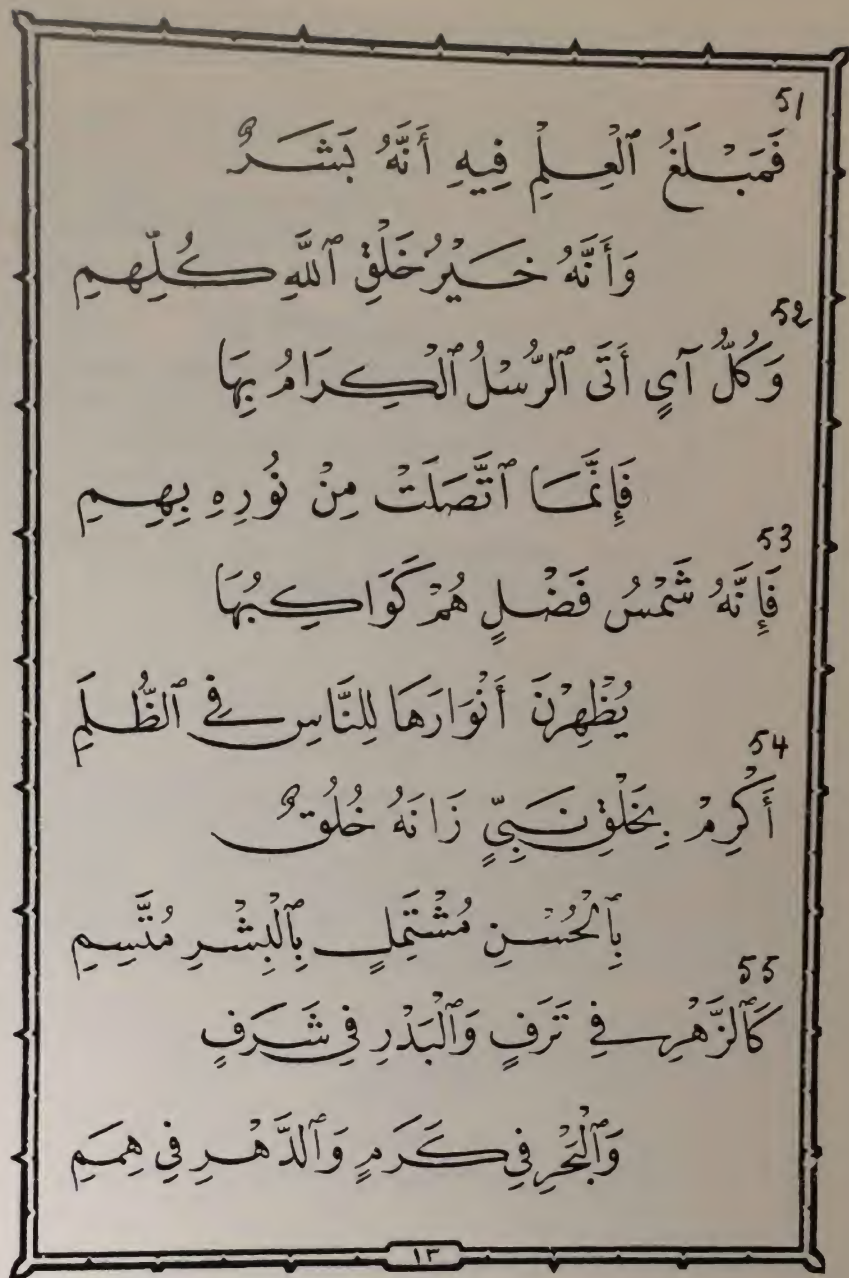 51
فَمَبْلَغُ ٱلْعِلْمِ فِيهِ أَنَّهُ بَشَرٌ
وَأَنَّهُ خَيْرُ خَلْقِ ٱللَّهِ كُلِّهِمِ
52
وَكُلُّ آيٍ أَتَى ٱلرُّسْلُ ٱلْكِرَامُ بِهَا
فَإِنَّمَا ٱتَّصَلَتْ مِنْ نُورِهِ بِهِمِ
53
فَإِنَّهُ شَمْسُ فَضْلٍ هُمْ كَوَاكِبُهَا
يُظْهِرْنَ أَنْوَارَهَا لِلنَّاسِ فِي ٱلظُّلَمِ
54
أَكْرِمْ بِخَلْقِ نَبِيٍّ زَانَهُ خُلُقٌ
بِٱلْحُسْنِ مُشْتَمِلٍ بِٱلْبِشْرِ مُتَّسِمِ
55
كَٱلزَّهْرِ فِي تَرَفٍ وَٱلْبَدْرِ فِي شَرَفٍ
وَٱلْبَحْرِ فِي كَرَمٍ وَٱلدَّهْرِ فِي هِمَمِ
١٣